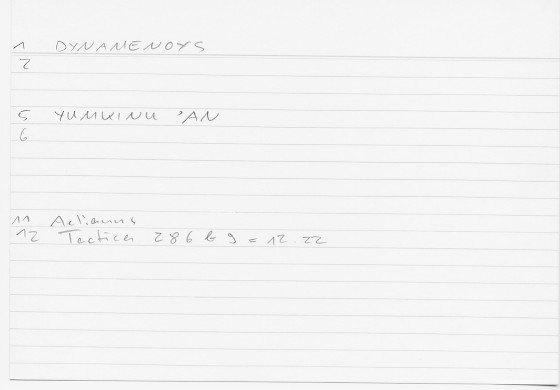 1 DYNAMENOYS
2
5 YUMWINU 'AN
6
11 Aelianus
12 Tactica 286 b 9 = 12.22